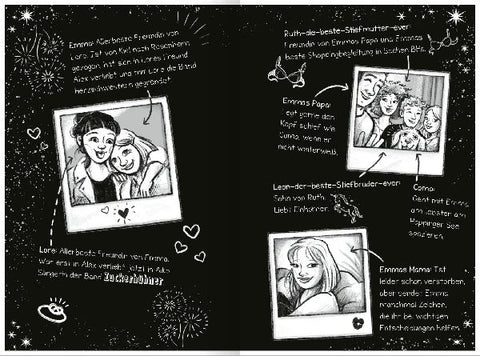 Emma: Allerbeste Freundin von
Lore. Ist von Kiel nach Rosenheim
gezogen, hat sich in Lores Freund
Alex verliebt und mit Lore die Band
Herzschwestern gegründet.
Lore: Allerbeste Freundin von Emma.
War erst in Alex verliebt, jetzt in Aiko.
Sängerin der Band Zuckerhühner
Ruth-die-beste-Stiefmutter-ever:
Freundin von Emmas Papa und Emmas
beste Shoppingbegleitung in Sachen BHs.
Emmas Papa:
Legt gerne den
Kopf schief wie
Coma, wenn er
nicht weiterweiß.
Leon-der-beste-Stiefbruder-ever:
Sohn von Ruth.
Liebt Einhörner.
Coma:
Geht mit Emma
am liebsten am
Happinger See
spazieren.
Emmas Mama: Ist
leider schon verstorben,
aber sendet Emma
manchmal Zeichen,
die ihr bei wichtigen
Entscheidungen helfen.